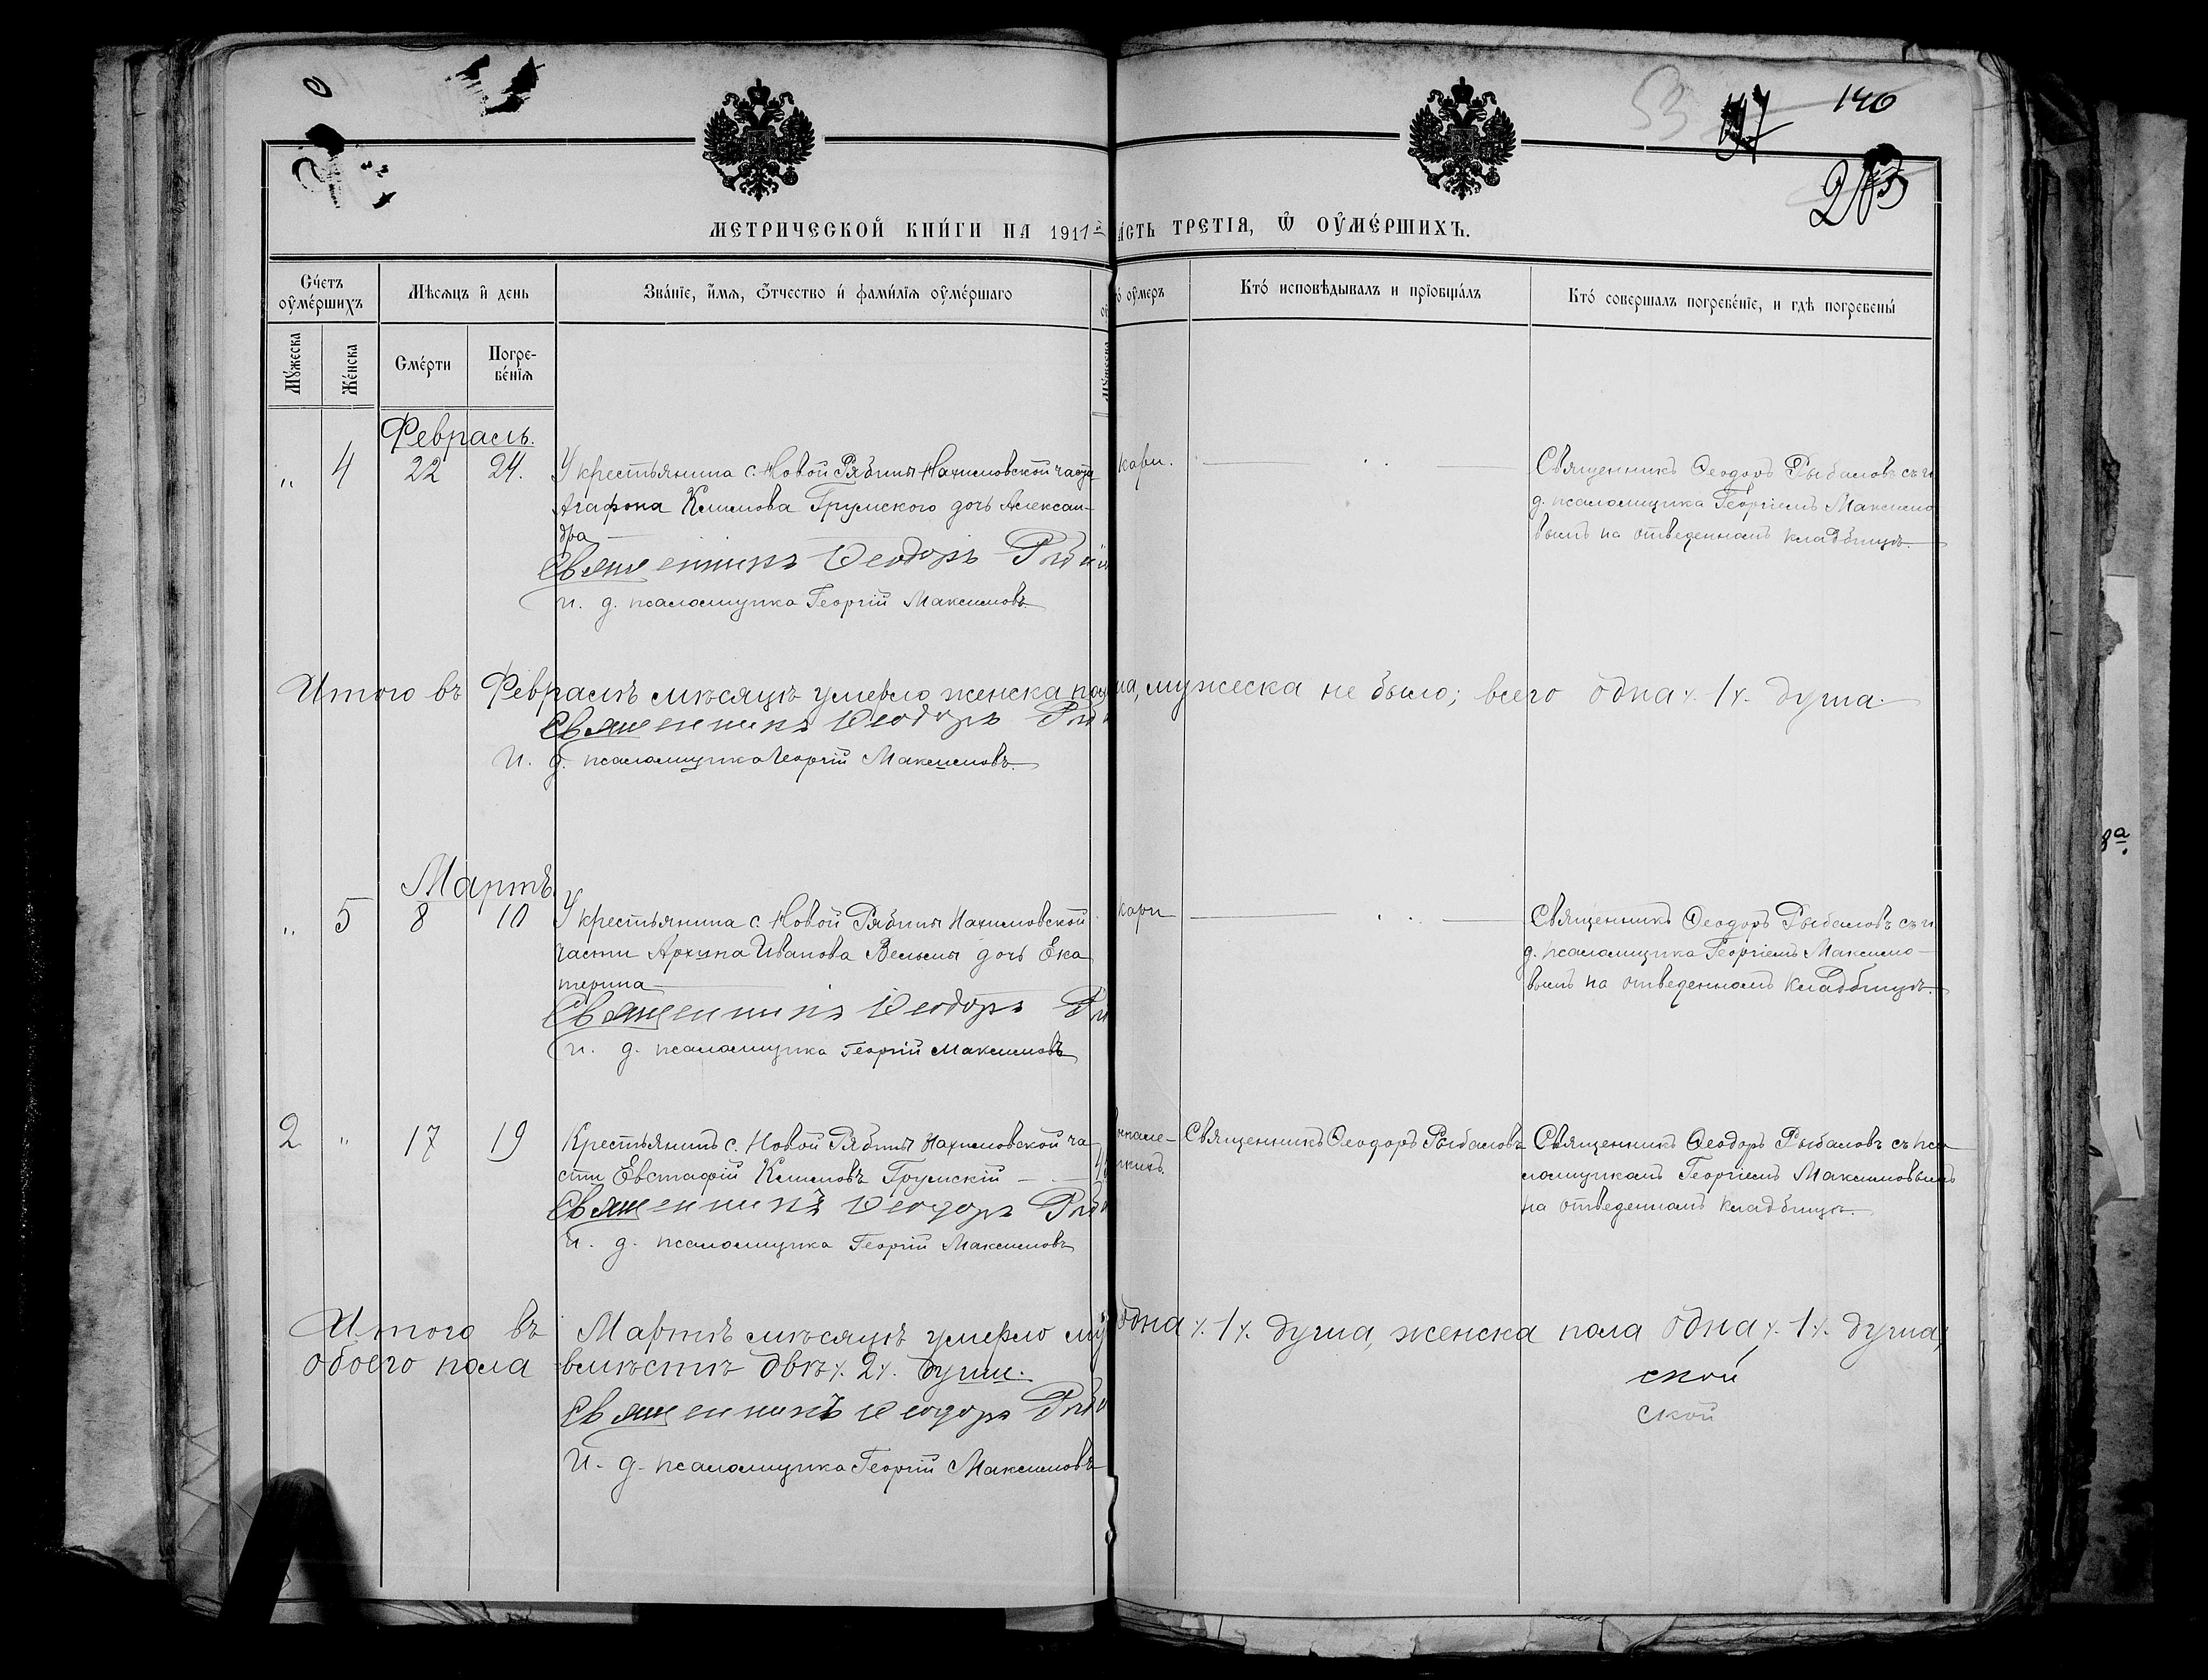 146
53
МЕТРИЧЕСКОЙ КНИ́ГИ НА 1911
А́СТЬ ТРЕТІЯ, Ѡ ОУМЕ́РШИХЪ.
Сче́тъ оуме́ршихъ
Мѣсѧцъ и҆ день
Зва́ніе, и҆́мѧ, ѻ҆́тчество и҆ фами́лїѧ оуме́ршаго
оумеръ
Кто́ исповѣ́дывалъ и прїобща́лъ
Кто́ соверша́лъ погребе́нїе, и гдѣ погребены́
Му́жеска
Же́нска
Сме́рти
Погре-
бе́нїѧ
Февраль.
„ 4 22 24. У крестьянина с. Новой Рябины Нахимовской части
Агафона Климова Грумского дочь Алексан-
дра
Священникъ Ѳеодоръ
и. д. псаломщика Георгій Максимовъ
кори.
Священникъ Ѳеодоръ Рыбаловъ съ и.
д. псаломщика Георгіемъ Максимо
вымъ на отведенномъ кладбищѣ.
Итого въ Февралѣ мѣсяцѣ умерло женска
мужеска не было; всего одна ٪ 1 ٪ душа.
Священникъ Ѳеодоръ
И. д. псаломщика Георгій Максимовъ.
Мартъ
„ 5 8 10 У крестьянина с. Новой Рябины Нахимовской
части Архипа Иванова Вельмы дочь Ека
терина
Священникъ Ѳеодоръ
и. д. псаломщика Георгій Максимовъ
кори
Священникъ Ѳеодоръ Рыбаловъ съ и.
д. псаломщика Георгіемъ Максимо-
вымъ на отведенномъ кладбищѣ.
2 „ 17 19 Крестьянинъ с. Новой Рябины Нахимовской ча
сти Евстафій Климовъ Грумскій
Священникъ Ѳеодоръ
и. д. псаломщика Георгій Максимовъ
Священникъ Ѳеодоръ Рыбаловъ
Священникъ Ѳеодоръ Рыбаловъ съ пса
ломщикомъ Георгіемъ Максимовымъ
на отведенномъ кладбищѣ.
Итого въ Мартѣ мѣсяцѣ умерло
одна ٪ 1 ٪ душа, женска пола одна ٪ 1 ٪ душа,
обоего пола вмѣстѣ двѣ ٪ 2 ٪ души.
Священникъ Ѳеодоръ
И. д. псаломщика Георгій Максимовъ
ской
ской